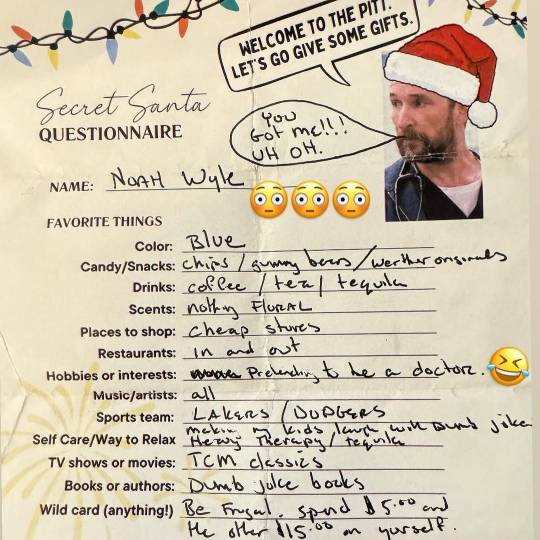 WELCOME TO THE PITT.
LET'S GO GIVE SOME GIFTS.
Secret Santa
QUESTIONNAIRE
YOU
GOT ME!!!
UH OH.
NAME: NOAH Wyle
FAVORITE THINGS
Color: Blue
Candy/Snacks: chips / gummy bears / werther originals
Drinks: coffee / tea / tequila
Scents: nothing FLORAL
Places to shop: cheap stores
Restaurants: in and out
Hobbies or interests: Pretending to be a doctor.
Music/artists: all
Sports team: LAKERS / DODGERS
making my kids laugh with Dumb jokes
Self Care/Way to Relax Heavy Therapy / tequila
TV shows or movies: TCM classics
Books or authors: Dumb joke books
Wild card (anything!) Be Frugal. spend $5.00 and
the other $15.00 on yourself.